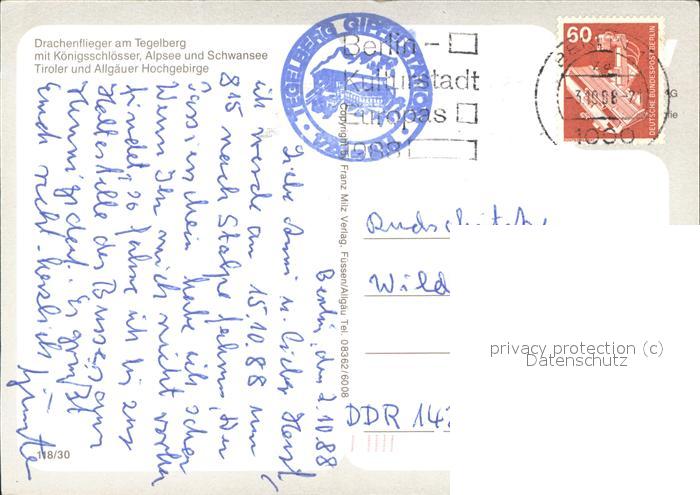 Drachenflieger am Tegelberg
mit Königsschlösser, Alpsee und Schwansee
Tiroler und Allgäuer Hochgebirge
TEGELBERG GIPFELSTATION
Berlin –
Kulturstadt
Europas
1988
BERLIN
-3.10.88-21
1000
60
DEUTSCHE BUNDESPOST BERLIN
Copyright by Franz Milz Verlag, Füssen/Allgäu Tel. 08362/6008
Berlin, den 2.10.88
Liebe Anni u. lieber Horst,
ich werde am 15.10.88 um
815 nach Stolpe fahren. Den
habe ich schon
Wenn Ihr mich nicht vorher
findet, so fahre ich bis zur
Haltestelle des Busses
Es grüßt
Euch recht herzlich Günter
Wild
DDR 14
privacy protection (c)
Datenschutz
118/30